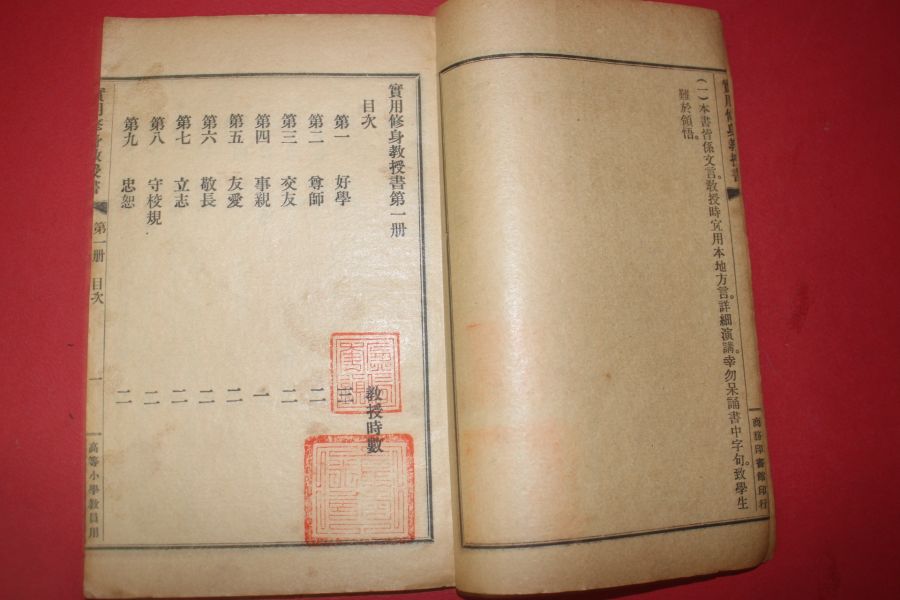 實用修身教授書
(一)本書皆係文言。教授時宜用本地方言。詳細演講。幸勿呆誦書中字句。致學生
難於領悟。
商務印書館印行
實用修身教授書第一册
目次
教授時數
第一 好學 三
第二 尊師 二
第三 交友 二
第四 事親 一
第五 友愛 二
第六 敬長 二
第七 立志 二
第八 守校規 二
第九 忠恕 二
實用修身教授書 第一册 目次 一 高等小學教員用